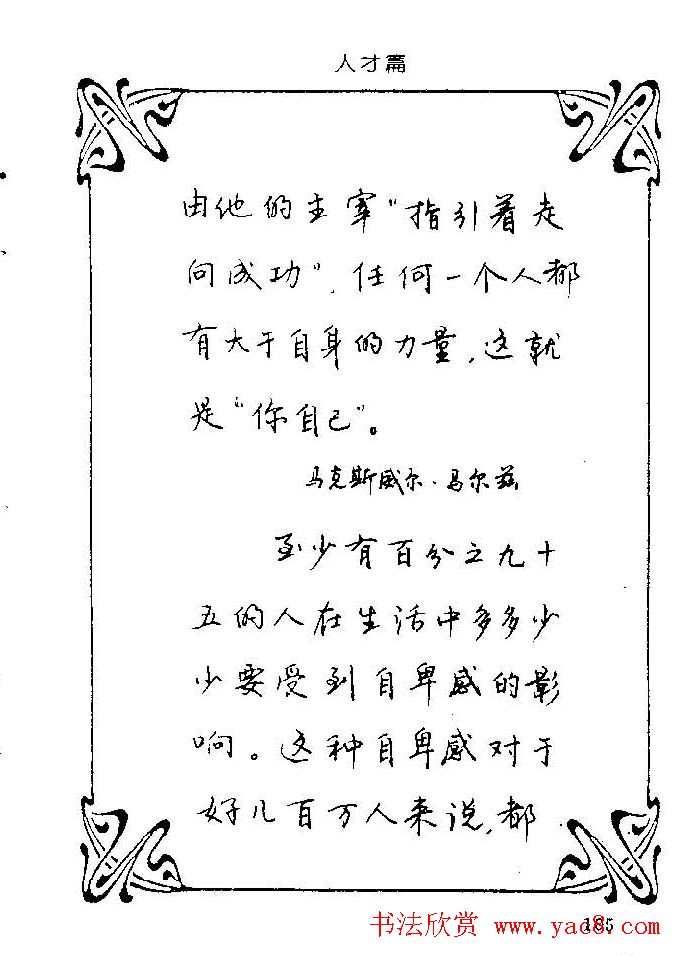 人才篇
由他的主宰“指引着走
向成功”，任何一个人都
有大于自身的力量，这就
是“你自己”。
马克斯威尔·马尔兹
至少有百分之九十
五的人在生活中多多少
少要受到自卑感的影
响。这种自卑感对于
好几百万人来说，都
185
书法欣赏 www.yac8.com